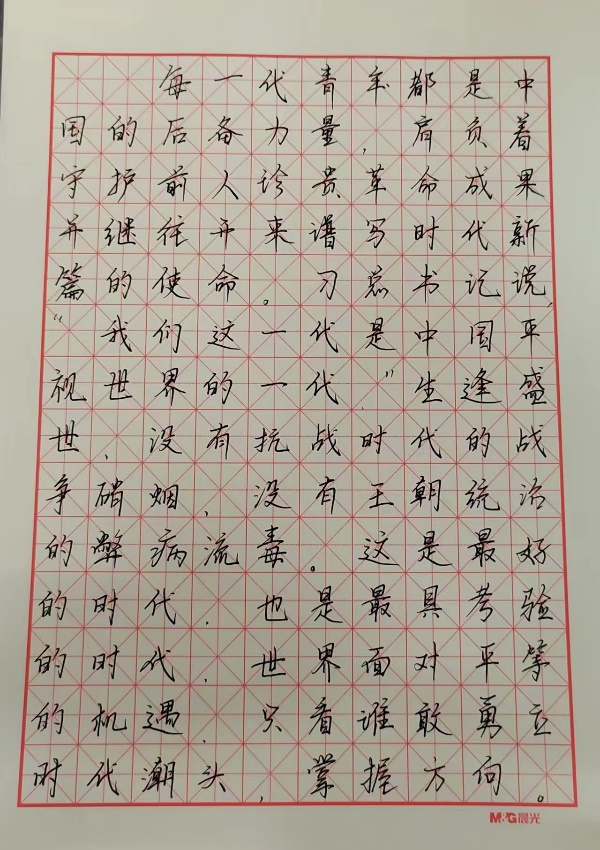 每一代青年都是中
国的后备力量，肩负着
守护前人珍贵革命成果
并继往开来谱写时代新
篇的使命。习总书记说，
“我们这一代是中国平
视世界的一代，”生逢盛
世，没有抗战时代的战
争硝烟，没有王朝统治
的弊病流毒。这是最好
的时代，也是最具考验
的时代，世界面对平等
的机遇，只看谁敢勇立
时代潮头，掌握方向。
M&G晨光